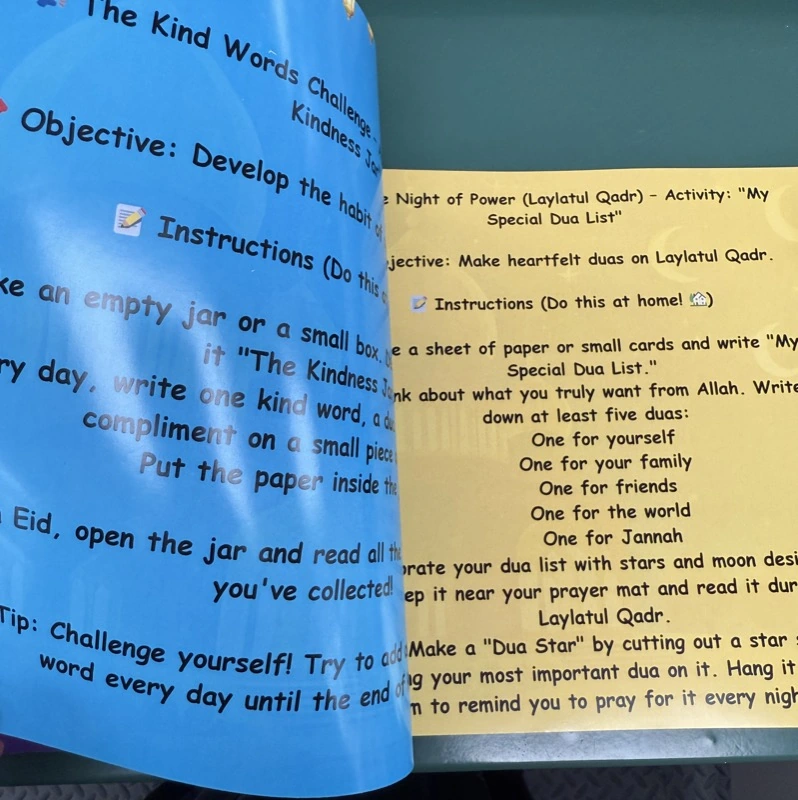 The Kind Words Challenge -
Kindness
Objective: Develop the habit
Instructions (Do this
an empty jar or a small box.
it "The Kindness
day, write one kind word, a
compliment on a small piece
Put the paper inside the
Eid, open the jar and read all
you've collected!
Tip: Challenge yourself! Try to add
word every day until the end of
Night of Power (Laylatul Qadr) - Activity: "My
Special Dua List"
jective: Make heartfelt duas on Laylatul Qadr.
Instructions (Do this at home! )
a sheet of paper or small cards and write "My
Special Dua List."
nk about what you truly want from Allah. Write
down at least five duas:
One for yourself
One for your family
One for friends
One for the world
One for Jannah
orate your dua list with stars and moon desi
ep it near your prayer mat and read it dur
Laylatul Qadr.
Make a "Dua Star" by cutting out a star
ng your most important dua on it. Hang it
to remind you to pray for it every nigh